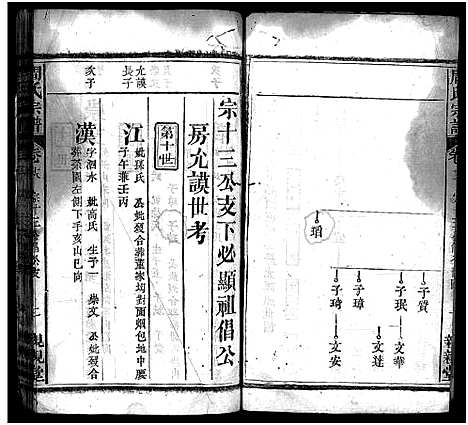 瑣
子賀
子珉
文華
子璋
文達
子琦
文安
宗十三公支下必顯祖倡公
房允謨世考
第十世
允謨
長子
江
妣孫氏
公妣殁合葬董家垅對面烟包地中腰
子午兼壬丙
次子
漢
字泗水
妣高氏
生子一
崇文
公妣殁合
葬祭園左側下手亥山巳向
親親堂